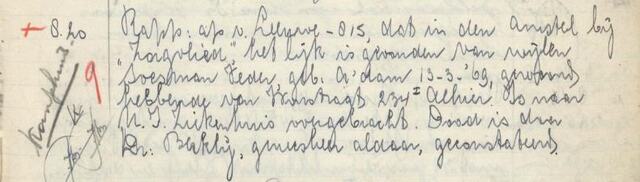 + 8.20 Rapp: ap v. Leeuwe - 815, dat in den Amstel bij
"Zorgvlied", het lijk is gevonden van wijlen
Soesman Veder, geb. A'dam 13-3-'69, gewoond
9 hebbende van Woustragt 234 I Alhier. Is naar
N.I. Ziekenhuis overgebracht. Dood is door
Dr: Blikly, geneesheer aldaar, geconstateerd.